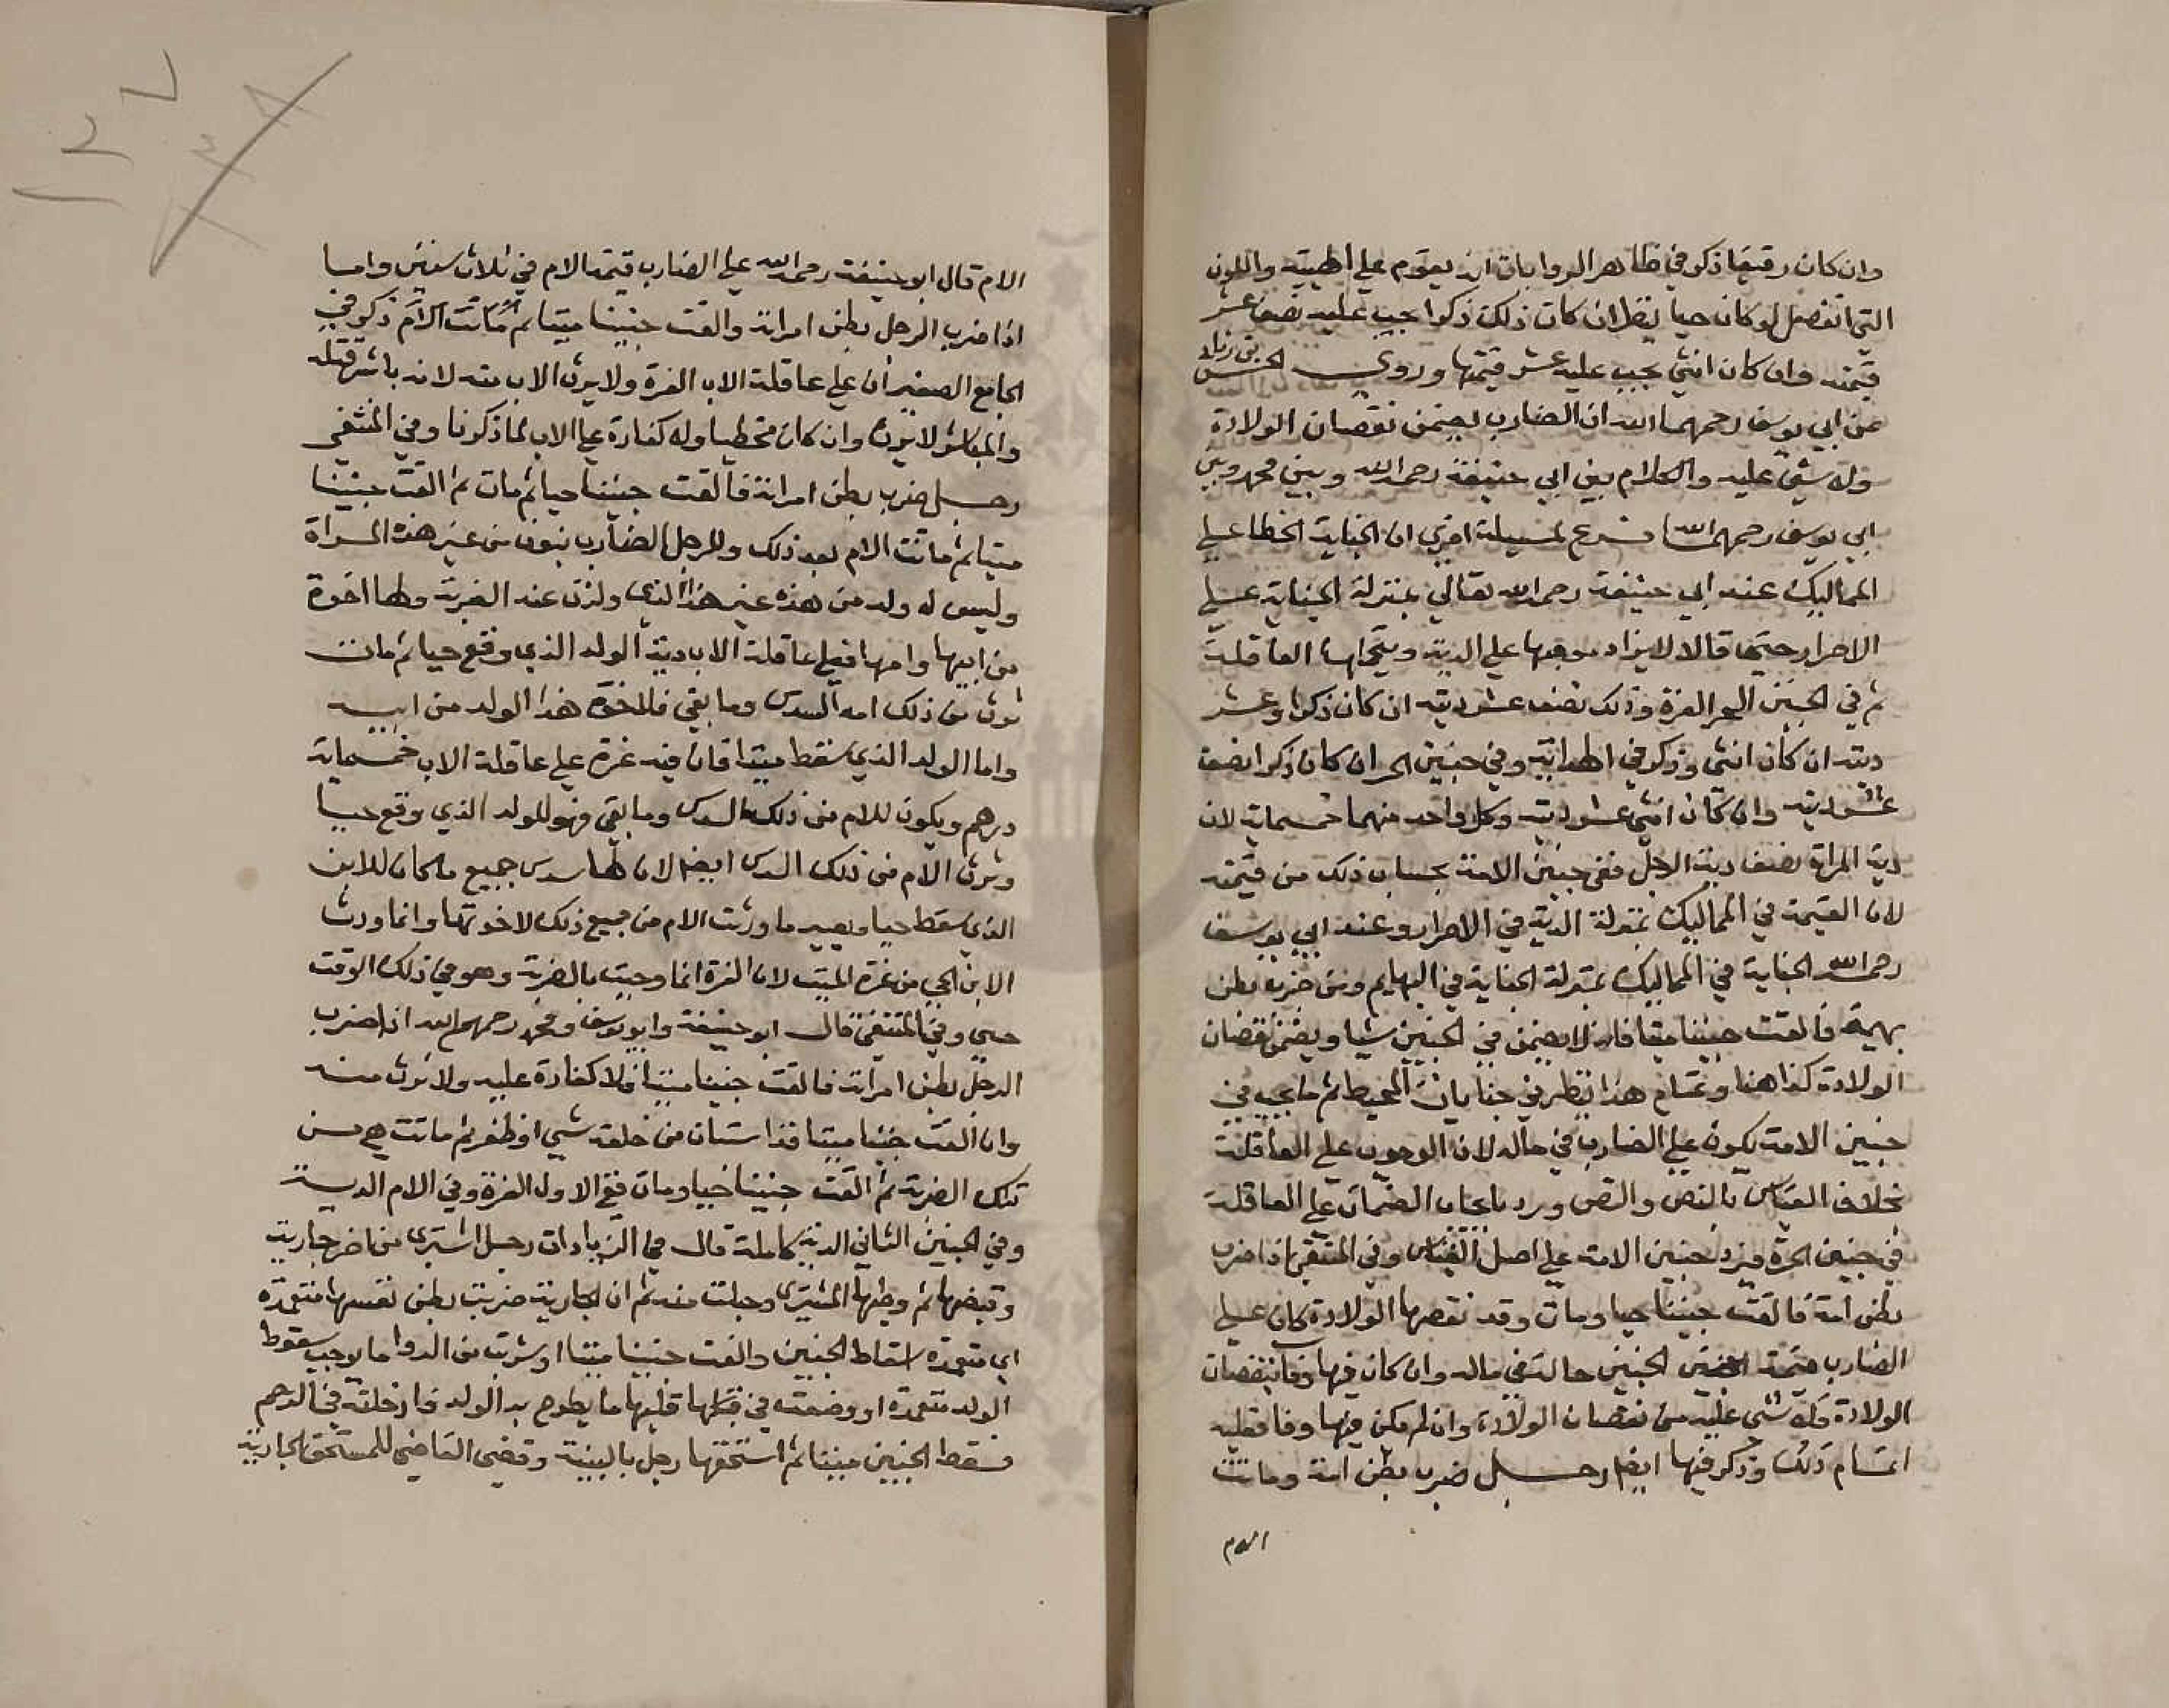 وان كان رقيقا ذكر في ظاهر الروايات انه يقوم علي الهيئة واللون
التي انفصل لو كان حيا ينظر ان كان ذلك ذكرا يجب عليه نصف عشر
قيمته وان كان انثي يجب عليه عشر قيمتها وروي الحسن بن زياد
عن ابي يوسف رحمهما الله ان الضارب يضمن نقصان الولادة
ولا شي عليه والكلام بين ابي حنيفة رحمه الله وبين محمد وبين
ابي يوسف رحمهما الله فرع لمسيلة اخري ان الجناية الخطا علي
المماليك عند ابي حنيفة رحمه الله تعالي بمنزلة الجناية علي
الاحرار حتي قالا لا يزاد موجبها علي الدية وتتحملها العاقلة
ثم في الجنين الحر الغرة وذلك نصف عشر ديته ان كان ذكرا وعشر
ديته ان كان انثي وذكر في الهداية وفي جنين الحر ان كان ذكرا نصف
عشر ديته وان كان انثي عشر ديته وكل واحد منهما خمسماية لان
دية المراة نصف دية الرجل ففي جنين الامة بحساب ذلك من قيمته
لان القيمة في المماليك بمنزلة الدية في الاحرار وعند ابي يوسف
رحمه الله الجناية في المماليك بمنزلة الجناية في البهايم ومن ضرب بطن
بهيمة فالقت جنينا ميتا فانه لا يضمن في الجنين شيا ويضمن نقصان
الولادة كذا هنا وتمام هذا ينظر في جنايات المحيط ثم ما يجب في
جنين الامة يكون علي الضارب في ماله لان الوجوب علي العاقلة
بخلاف القياس بالنص والنص ورد بايجاب الضمان علي العاقلة
في جنين الحرة فيرد جنين الامة علي اصل القياس وفي المنتقي اذا ضرب
بطن امة فالقت جنينا حيا ومات وقد نقصها الولادة كان علي
الضارب قيمة الجنين حالة في ماله وان كان فيها وفا بنقصان
الولادة فلا شي عليه من نقصان الولادة وان لم يكن فيها وفا فعليه
اتمام ذلك وذكر فيها ايضا رجل ضرب بطن امة وماتت
الام
الام قال ابو حنيفة رحمه الله علي الضارب قيمة الام في ثلاث سنين واما
اذا ضرب الرجل بطن امراته والقت جنينا ميتا ثم ماتت الام ذكر في
الجامع الصغير ان علي عاقلة الاب الغرة ولا يرث الاب منه لانه باشر قتله
والمباشر لا يرث وان كان مخطيا وله كفارة علي الاب لما ذكرنا وفي المنتقي
رجل ضرب بطن امراته فالقت جنينا حيا ثم مات ثم القت جنينا
ميتا ثم ماتت الام بعد ذلك وللرجل الضارب بنون من غير هذه المراة
وليس له ولد من هذه غير هذا الذي ولدت عند الضربة ولها اخوة
من ابيها وامها فعلي عاقلة الاب دية الولد الذي وقع حيا ثم مات
ترث من ذلك امه السدس وما بقي فلاخوة هذا الولد من ابيه
واما الولد الذي سقط ميتا فان فيه غرة علي عاقلة الاب خمسماية
درهم ويكون للام من ذلك السدس وما بقي فهو للولد الذي وقع حيا
وترث الام من ذلك السدس ايضا لان لها سدس جميع ما كان للابن
الذي سقط حيا ويصير ما ورثت الام من جميع ذلك لاخوتها وانما ورث
الابن الحي من غرة الميت لان الغرة انما وجبت بالضربة وهو في ذلك الوقت
حي وفي المنتقي قال ابو حنيفة وابو يوسف ومحمد رحمهم الله اذا ضرب
الرجل بطن امراته فالقت جنينا ميتا فلا كفارة عليه ولا يرث منه
وان القت جنينا ميتا قد استبان من خلقه شي او ظفر ثم ماتت هي من
تلك الضربة ثم القت جنينا حيا ومات ففي الاول الغرة وفي الام الدية
وفي الجنين الثاني الدية كاملة قال في الزيادات رجل اشتري من اخر جارية
وقبضها ثم وطيها المشتري وحبلت منه ثم ان الجارية ضربت بطن نفسها متعمدة
اي متعمدة اسقاط الجنين والقت جنينا ميتا او شربت من الدوا ما يوجب سقوط
الولد متعمدة او وضعته في قبلها ما يطرح به الولد فادخلته في الرحم
فسقط الجنين ميتا ثم استحقها رجل بالبينة وقضي القاضي للمستحق بالجارية